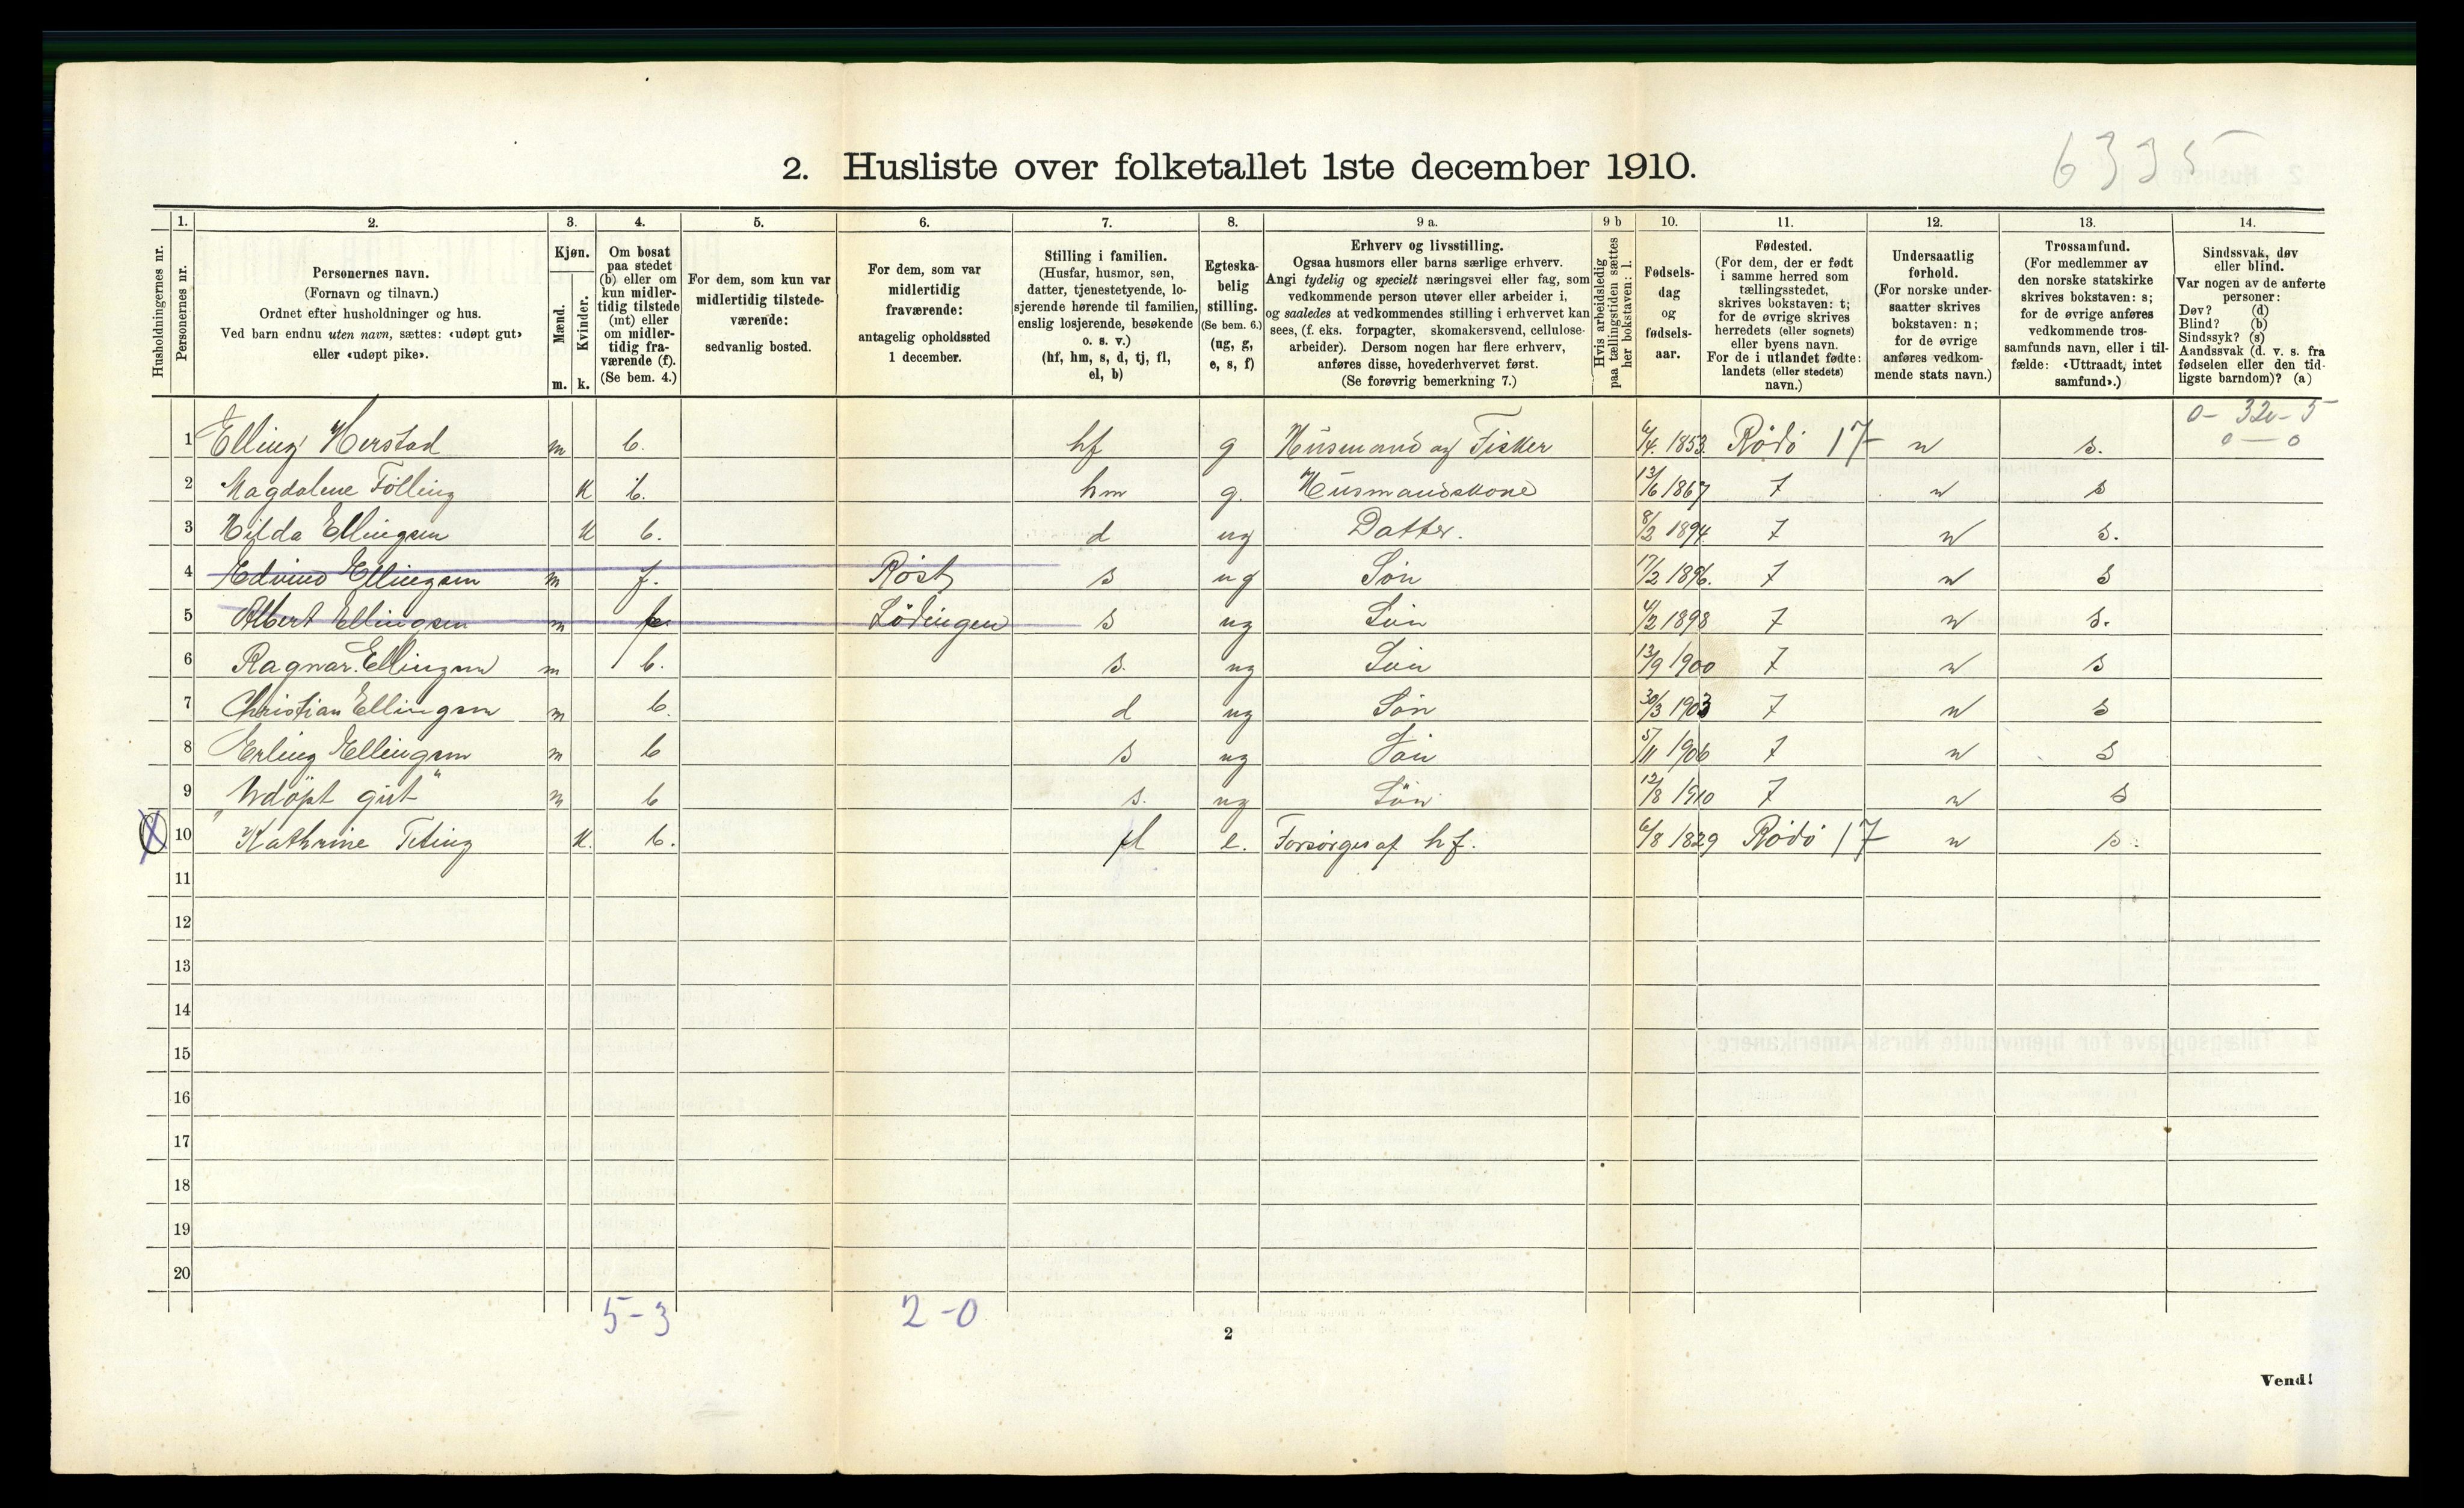 6335
2. Husliste over folketallet 1ste december 1910.
Husholdningernes nr.
1. Personernes nr.
2. Personernes navn.
(Fornavn og tilnavn.)
Ordnet efter husholdninger og hus.
Ved barn endnu uten navn, sættes: «udøpt gut»
eller «udøpt pike».
3. Kjøn.
Mænd. m.
Kvinder. k.
4. Om bosat
paa stedet
(b) eller om
kun midler-
tidig tilstede
(mt) eller
om midler-
tidig fra-
værende (f).
(Se bem. 4.)
5. For dem, som kun var
midlertidig tilstede-
værende:
sedvanlig bosted.
6. For dem, som var
midlertidig
fraværende:
antagelig opholdssted
1 december.
7. Stilling i familien.
(Husfar, husmor, søn,
datter, tjenestetyende, lo-
sjerende hørende til familien,
enslig losjerende, besøkende
o. s. v.)
(hf, hm, s, d, tj, fl,
el, b)
8. Egteska-
belig
stilling.
(Se bem. 6.)
(ug, g,
e, s, f)
9 a. Erhverv og livsstilling.
Ogsaa husmors eller barns særlige erhverv.
Angi tydelig og specielt næringsvei eller fag, som
vedkommende person utøver eller arbeider i,
og saaledes at vedkommendes stilling i erhvervet kan
sees, (f. eks. forpagter, skomakersvend, cellulose-
arbeider). Dersom nogen har flere erhverv,
anføres disse, hovederhvervet først.
(Se forøvrig bemerkning 7.)
9 b Hvis arbeidsledig
paa tællingstiden sættes
her bokstaven: l.
10. Fødsels-
dag
og
fødsels-
aar.
11. Fødested.
(For dem, der er født
i samme herred som
tællingsstedet,
skrives bokstaven: t;
for de øvrige skrives
herredets (eller sognets)
eller byens navn.
For de i utlandet fødte:
landets (eller stedets)
navn.)
12. Undersaatlig
forhold.
(For norske under-
saatter skrives
bokstaven: n;
for de øvrige
anføres vedkom-
mende stats navn.)
13. Trossamfund.
(For medlemmer av
den norske statskirke
skrives bokstaven: s;
for de øvrige anføres
vedkommende tros-
samfunds navn, eller i til-
fælde: «Uttraadt, intet
samfund».)
14. Sindssvak, døv
eller blind.
Var nogen av de anførte
personer:
Døv? (d)
Blind? (b)
Sindssyk? (s)
Aandssvak (d. v. s. fra
fødselen eller den tid-
ligste barndom)? (a)
1 Elling Herstad m b. hf g Husmand og Fisker 6/4. 1853. Rödö 17 n s. 0 — 0
2 Magdalene Fölling k b. hm g. Husmandskone 13/6 1867 t n s
3 Hilda Ellingsen k b. d ug Datter. 8/2 1894 t n s.
4 Edvind Ellingsen m f. Röst s ug Sön 17/2 1896. t n s
5 Albert Ellingsen m f Lödingen s ug Sön 4/2 1898 t n s.
6 Ragnar Ellingsen m b. s. ug Sön 13/9 1900 t n s
7 Christian Ellingsen m b. d ug Sön 30/3 1903 t n s
8 Erling Ellingsen m b s ug Sön 5/11 1906 t n s
9 "Udöpt gut" m b s. ug Sön 12/8 1910 t n s
10 Kathrine Teting k. b. fl e. Forsörges af hf. 6/8 1829 Rödö 17 n s.
11
12
13
14
15
16
17
18
19
20
5-3 2-0
2
Vend!